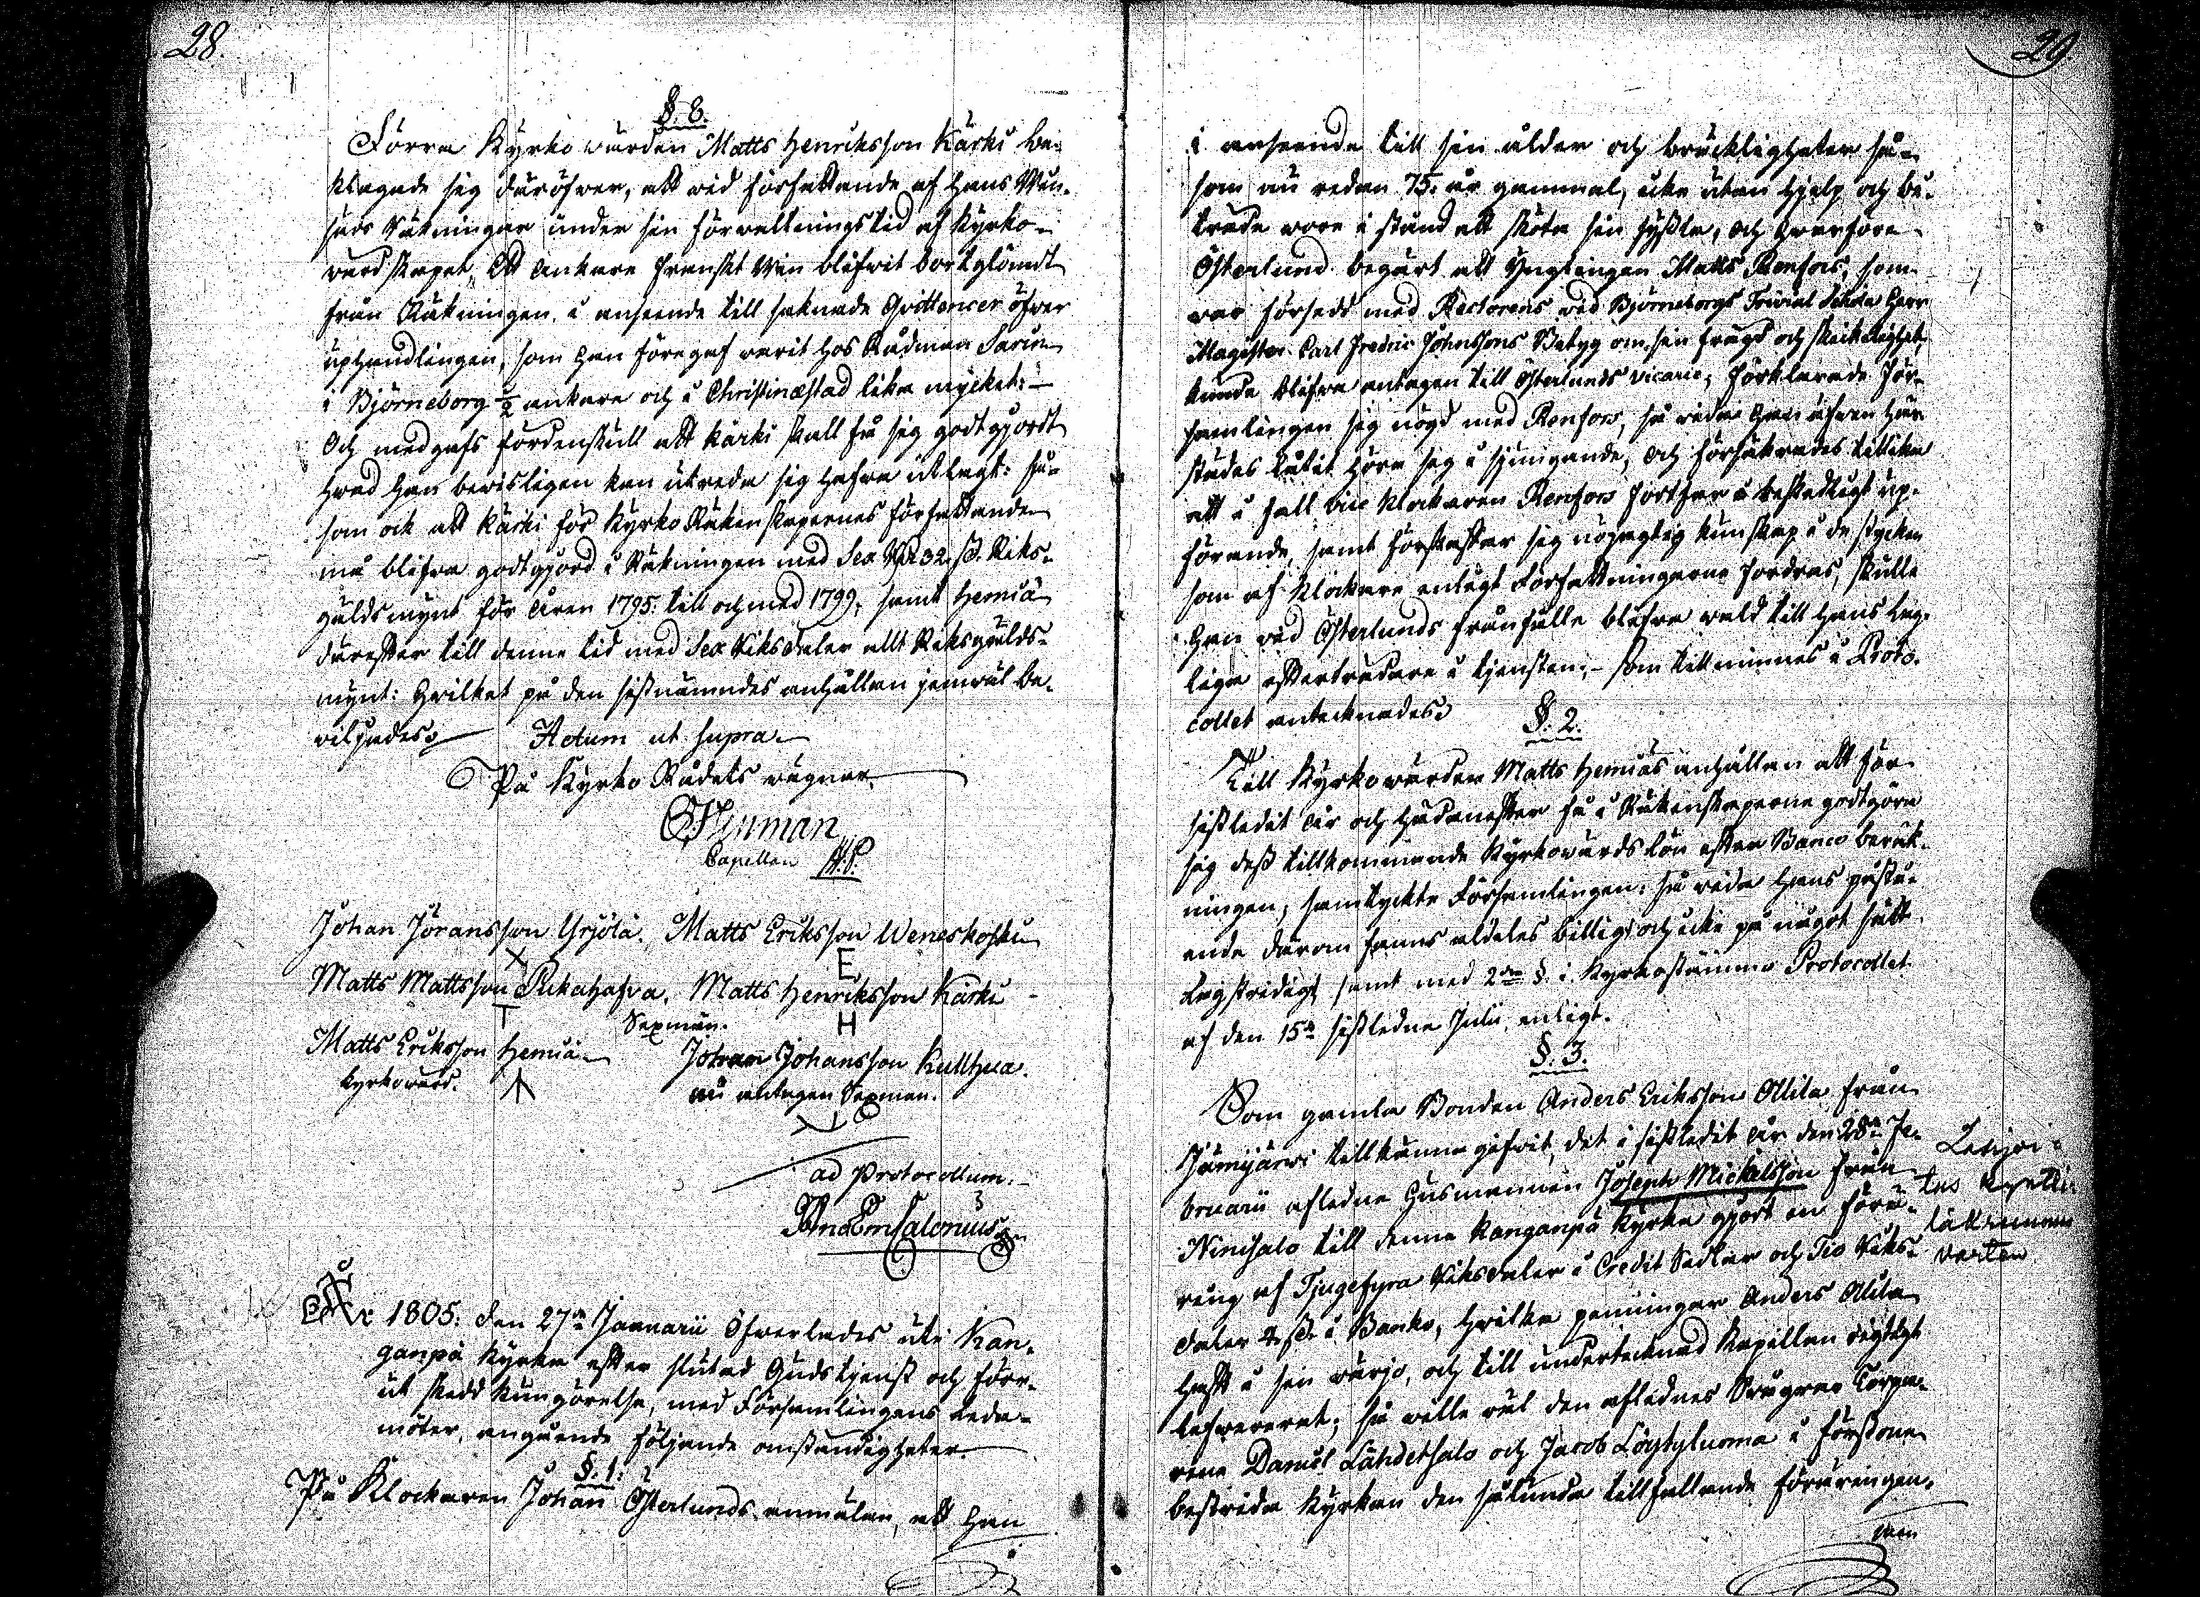 28.
§. 8.
Förra Kyrko wärden Matts Henriksson Kärki be-
klagade sig däröfwer, att wid författande af hans Wun-
 Räkningar under sin förvaltningstid af Kyrko-
värdskapet, Ett Ankare Franskt Win blifwit bortglömdt
från Räkningen, i anseende till saknade Qvittencer öfver
uphandlingen, som han föregaf varit hos Rådman Sarin
i Björneborg ½ ankare och i Christinæstad lika mycket: —
Och medgafs fördenskull att Kärki skall få sig godtgjordt
hvad han bevisligen kan utreda sig hafva utlagt: så-
som ock att Kärki för Kyrko Räkenskapernes författande
må blifva godtgjord i Räkningen med Sex Rd 32 sk. Riks-
gäldsmynt för åren 1795. till och med 1799, samt Hemiä
därefter till denne tid med Sex Riksdaler allt Riksgälds-
mynt: hvilket på den sistnämndes anhållan jemväl be-
viljades. Actum ut supra.
På Kyrko Rådets wägnar.
Capellan
Johan Jöransson Yrjölä. Matts Eriksson Weneskoski
X E
Matts Mattsson Pukahafva. Matts Henriksson Kärki
T Sexmän. H
Matts Eriksson Hemiä Johan Johansson Kullhua.
Kyrkovärd. nu antagen Sexman.
ad Protocollum.
And Em Calonius
År 1805. den 27de Januarii Öfverlades uti Kan-
ganpä Kyrka efter slutad Gudstjenst och förr-
ut skedd kungörelse, med Församlingens Leda-
möter, angående följande omständigheter.
§. 1.
På Klockaren Johan Österlunds anmälan, att han
29.
i anseende till sin ålder och bräckligheter så-
som nu redan 75. år gammal, icke utan hjelp och bi-
träde vore i stånd att sköta sin syssla, och hvarföre
Österlund begärt att Ynglingen Matts Renfors, som
var försedd med Rectorens vid Björneborgs Trivial Schola Herr
Magister Carl Fredric Johnssons Betyg om sin frägd och skickelighet,
kunde blifva antagen till Österlunds vicarie, förklarade För-
samlingen sig nögd med Renfors, så vida han äfven här-
städes låtit höra sig i sjungande, och försäkrades tillika
att i fall vice Klockaren Renfors fortfar i beskedligt up-
förande, samt förskaffar sig nöjagtig kunskap i de stycken
som af Klockare enligt Författningarne fordras, skulle
han vid Österlunds frånfälle blifva vald till hans lag-
liga efterträdare i tjensten; — Som till minnes i Proto-
collet antecknades.
§. 2.
Till Kyrkovärden Matts Hemiäs anhållan att för
sistledit år och hädanefter få i Räkenskaperne godtgöra
sig dess tillkommande Kyrkovärds lön efter Banco beräk-
ningen, samtyckte Församlingen: så vida hans påstå-
ende därom fanns aldeles billigt och icke på något sätt
lagstridigt samt med 2dra §. i Kyrkostämmo Protocollet
af den 15de sistledne Julii, enligt.
§. 3.
Som gamla Bonden Anders Eriksson Ollila från
Jämijärvi tillkänna gifvit, det i sistledit år den 28de Fe-
bruarii afledne Husmannen Joseph Mickelsson från
Niinisalo till denna Kanganpä Kyrka gjort en förä-
ring af Tjugefyra Riksdaler i Credit Sedlar och Tio Riks-
daler 4 sk. i Banko, hvilka penningar Anders Ollila
haft i sin värjo, och till undertecknad Kapellan rigtigt
lefvererat; så wille väl den aflednes Svågrar Torpa-
rene Daniel Lähdeshalo och Jacob Löytyluoma i förstone
bestrida Kyrkan den sålunda tillfallande föräringen,
men